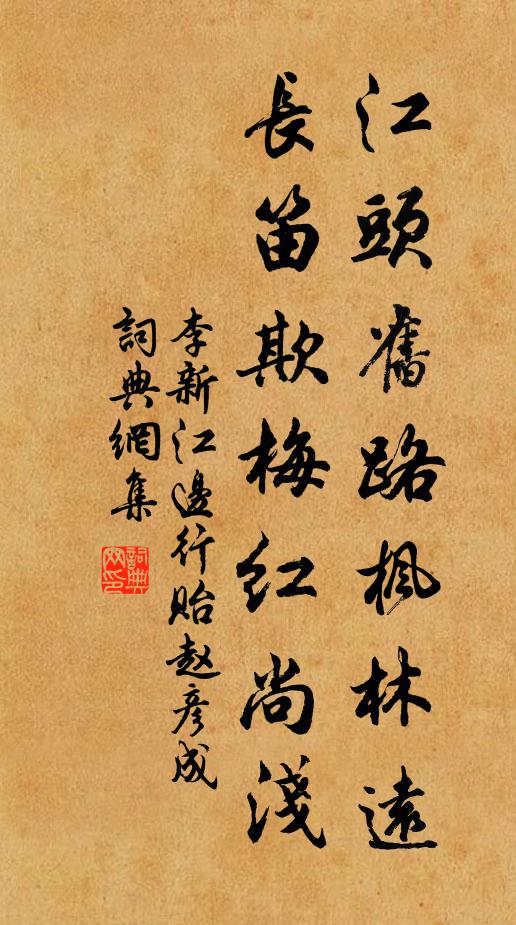 江頭舊路楓林遠
長笛欺梅红尚淺
李新江邊行貽赵彦成
詞典網集
詞典网印